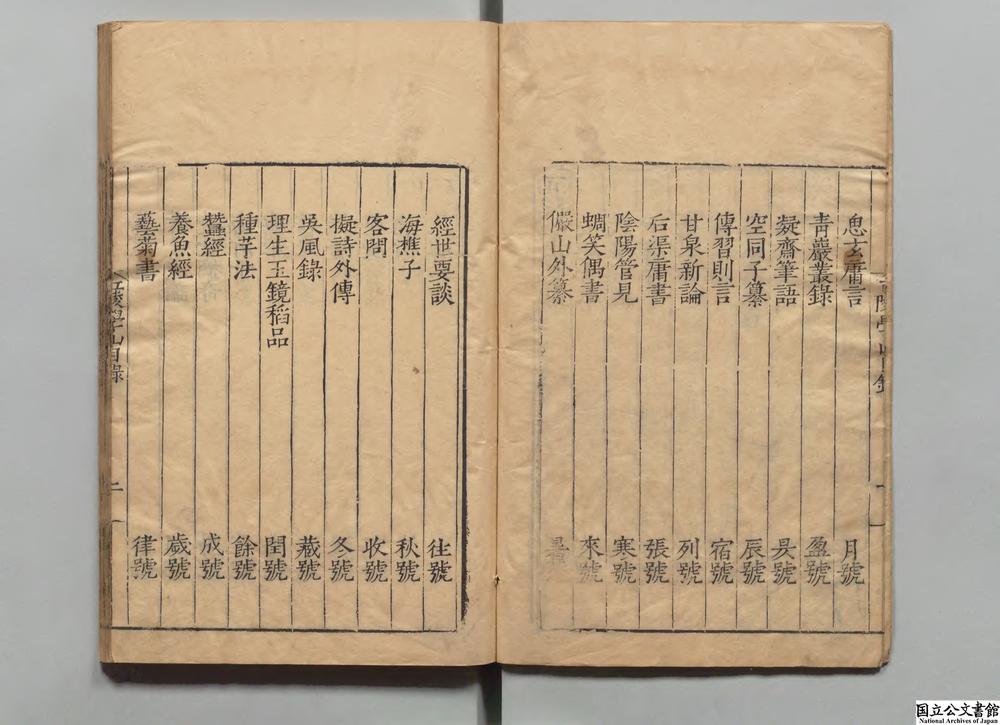 思玄庸言 月號
青巖叢錄 盈號
凝齋筆語 昃號
空同子纂 辰號
傳習則言 宿號
甘泉新論 列號
后渠庸書 張號
陰陽管見 寒號
蜩笑偶書 來號
儼山外纂 暑
經世要談 往號
海樵子 秋號
客問 收號
擬詩外傳 冬號
吳風錄 藏號
理生玉鏡稻品 閏號
種芋法 餘號
蠶經 成號
養魚經 歲號
藝菊書 律號
二
国立公文書館
National Archives of Japan